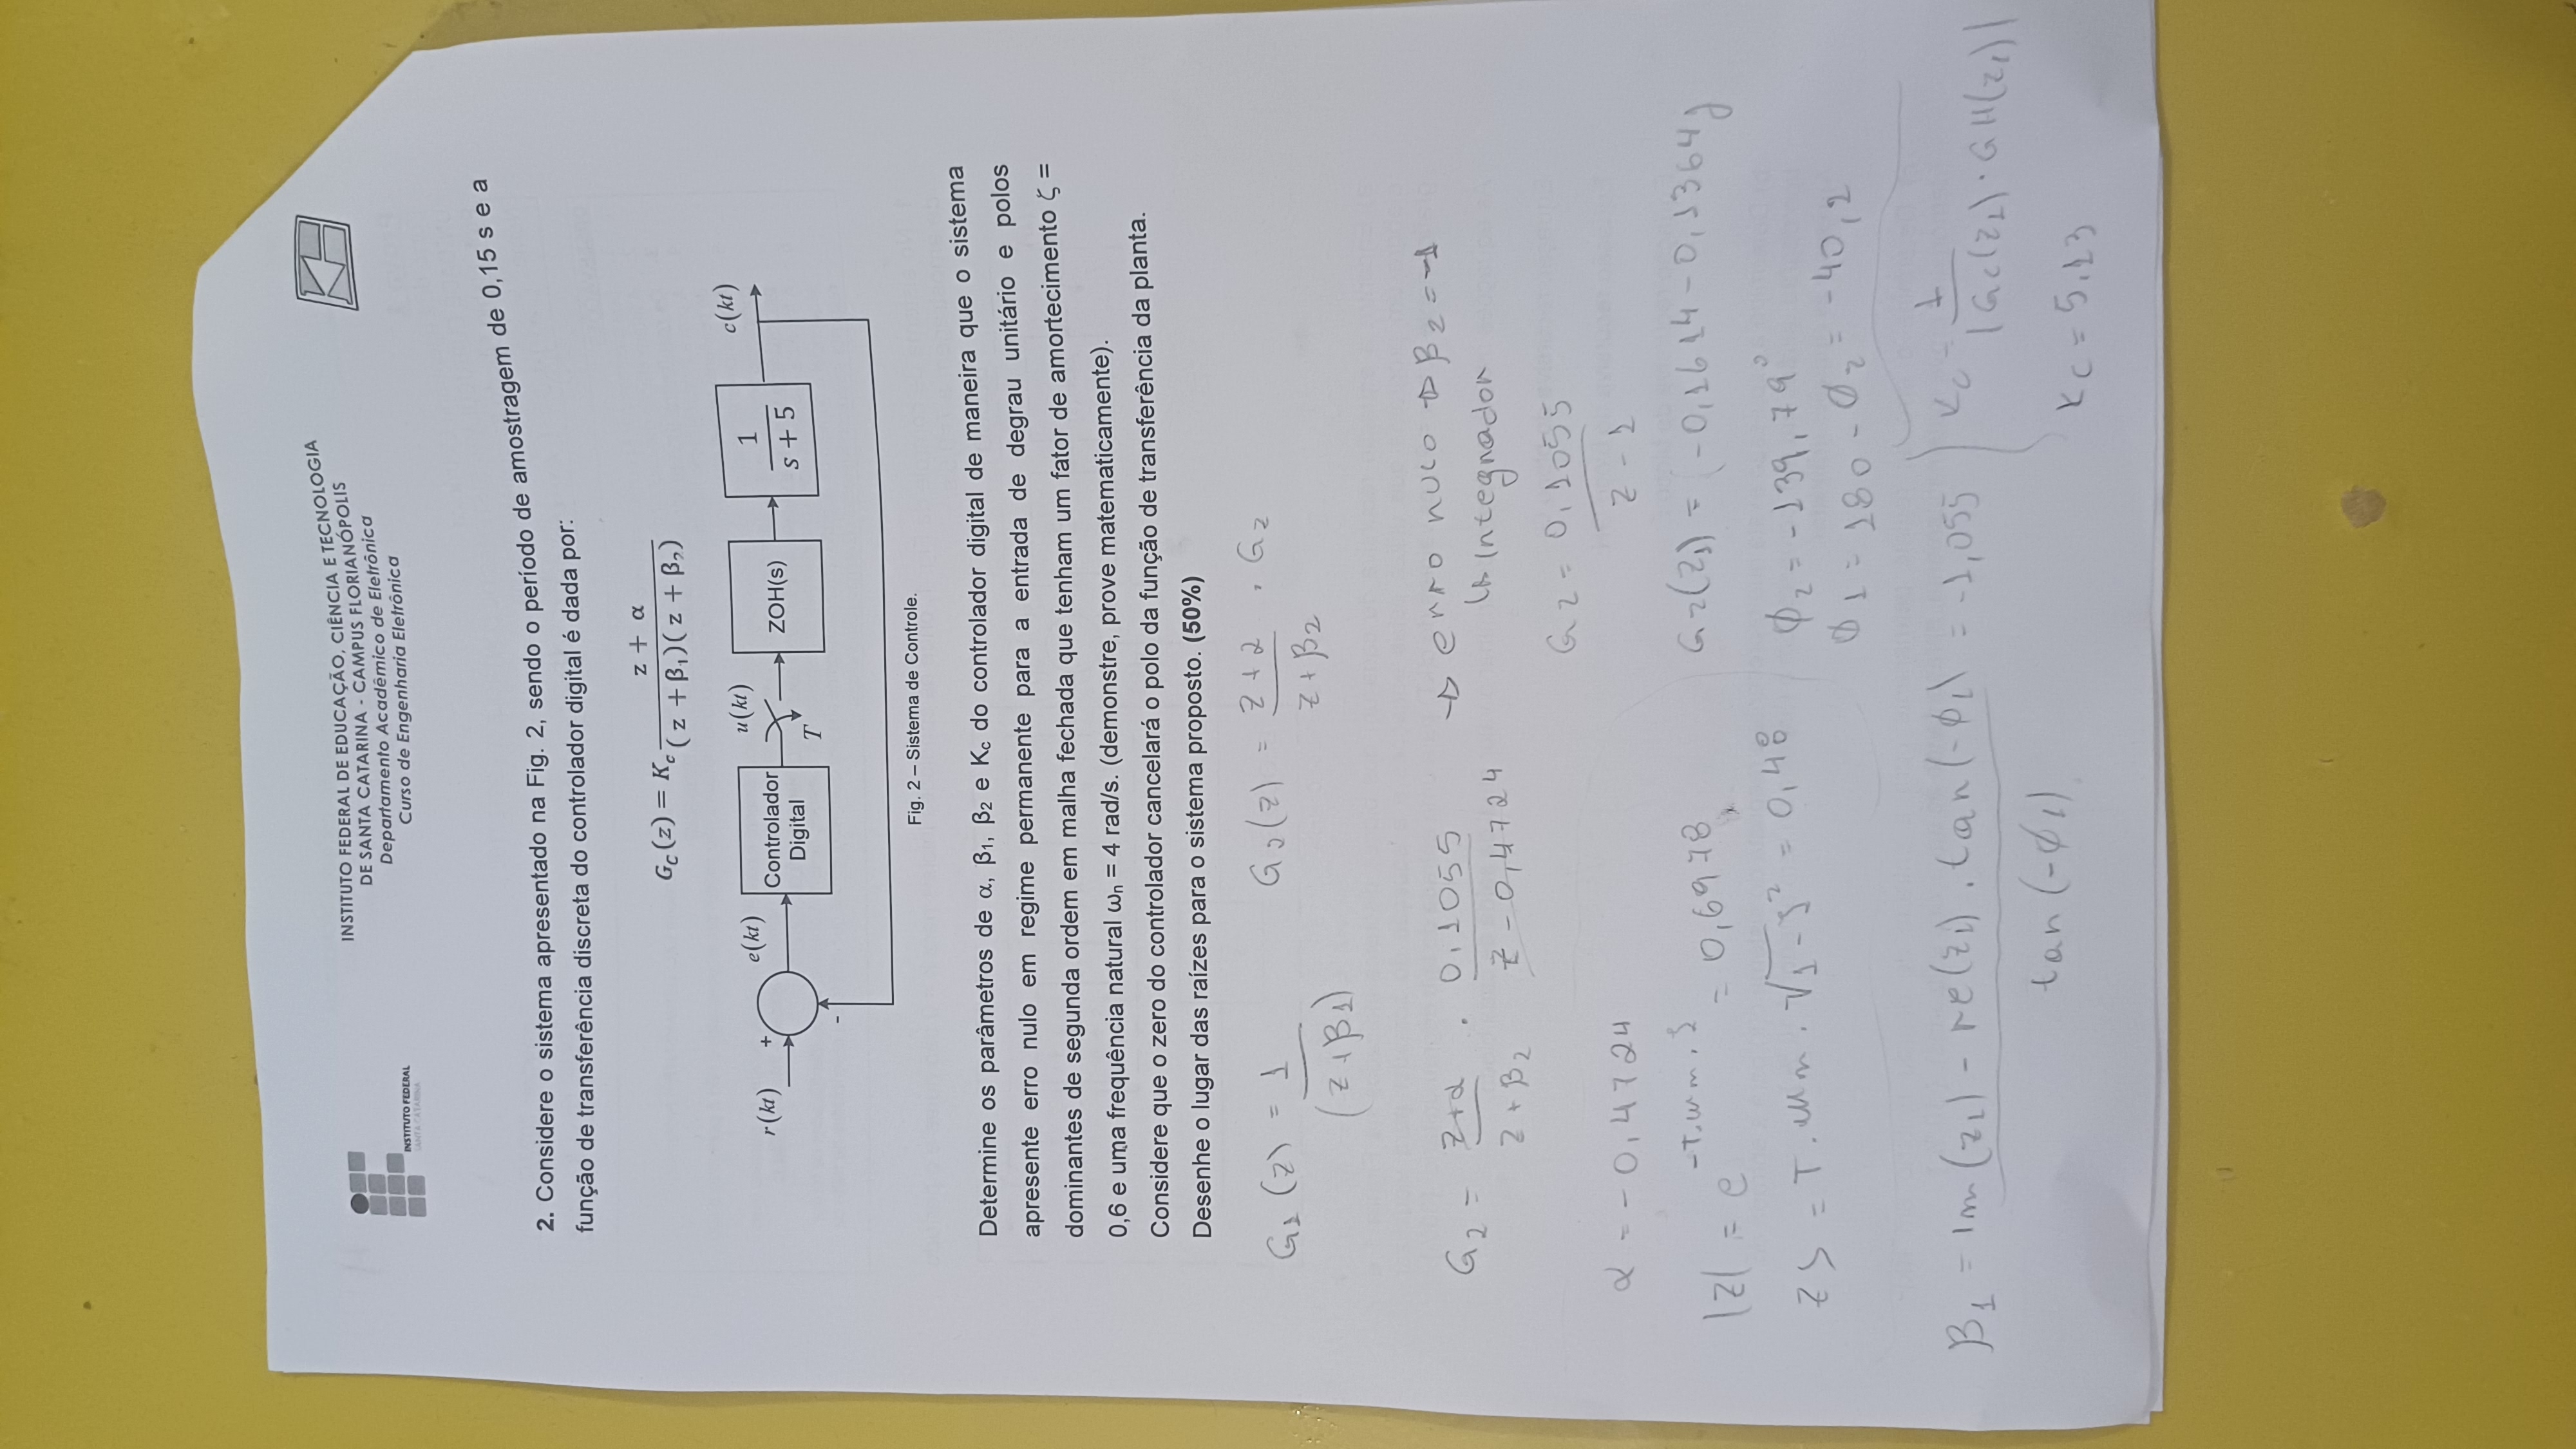 INSTITUTO FEDERAL
SANTA CATARINA
INSTITUTO FEDERAL DE EDUCAÇÃO, CIÊNCIA E TECNOLOGIA
DE SANTA CATARINA - CAMPUS FLORIANÓPOLIS
Departamento Acadêmico de Eletrônica
Curso de Engenharia Eletrônica
2. Considere o sistema apresentado na Fig. 2, sendo o período de amostragem de 0,15 s e a
função de transferência discreta do controlador digital é dada por:
G_C(z) = K_c (z + α) / ((z + β₁)(z + β₂))
r(kt) + - e(kt) Controlador Digital u(kt) T ZOH(s) 1/(s + 5) c(kt)
Fig. 2 – Sistema de Controle.
Determine os parâmetros de α, β₁, β₂ e K_c do controlador digital de maneira que o sistema
apresente erro nulo em regime permanente para a entrada de degrau unitário e polos
dominantes de segunda ordem em malha fechada que tenham um fator de amortecimento ζ =
0,6 e uma frequência natural ω_n = 4 rad/s. (demonstre, prove matematicamente).
Considere que o zero do controlador cancelará o polo da função de transferência da planta.
Desenhe o lugar das raízes para o sistema proposto. (50%)
G₁(z) = 1/(z+β₁)
G₂(z) = (z+α)/(z+β₂) . Gz
G₂ = (z+α)/(z+β₂) . 0,1055/(z-0,4724)
→ erro nulo → β₂ = -1
↳ Integrador
G₂ = 0,1055/(z-1)
α = -0,4724
|z| = e^(-T.wn.ζ) = 0,6978
G₂(z₁) = -0,1614-0,1364j
z∠ = T.wn.√(1-ζ²) = 0,48
ϕ₂ = -139,79°
ϕ₁ = 180 - ϕ₂ = -40,2
β₁ = (Im(z₁) - re(z₁).tan(-ϕ₁))/tan(-ϕ₁) = -1,055
Kc = 1/|Gc(z₁).GH(z₁)|
Kc = 5,13